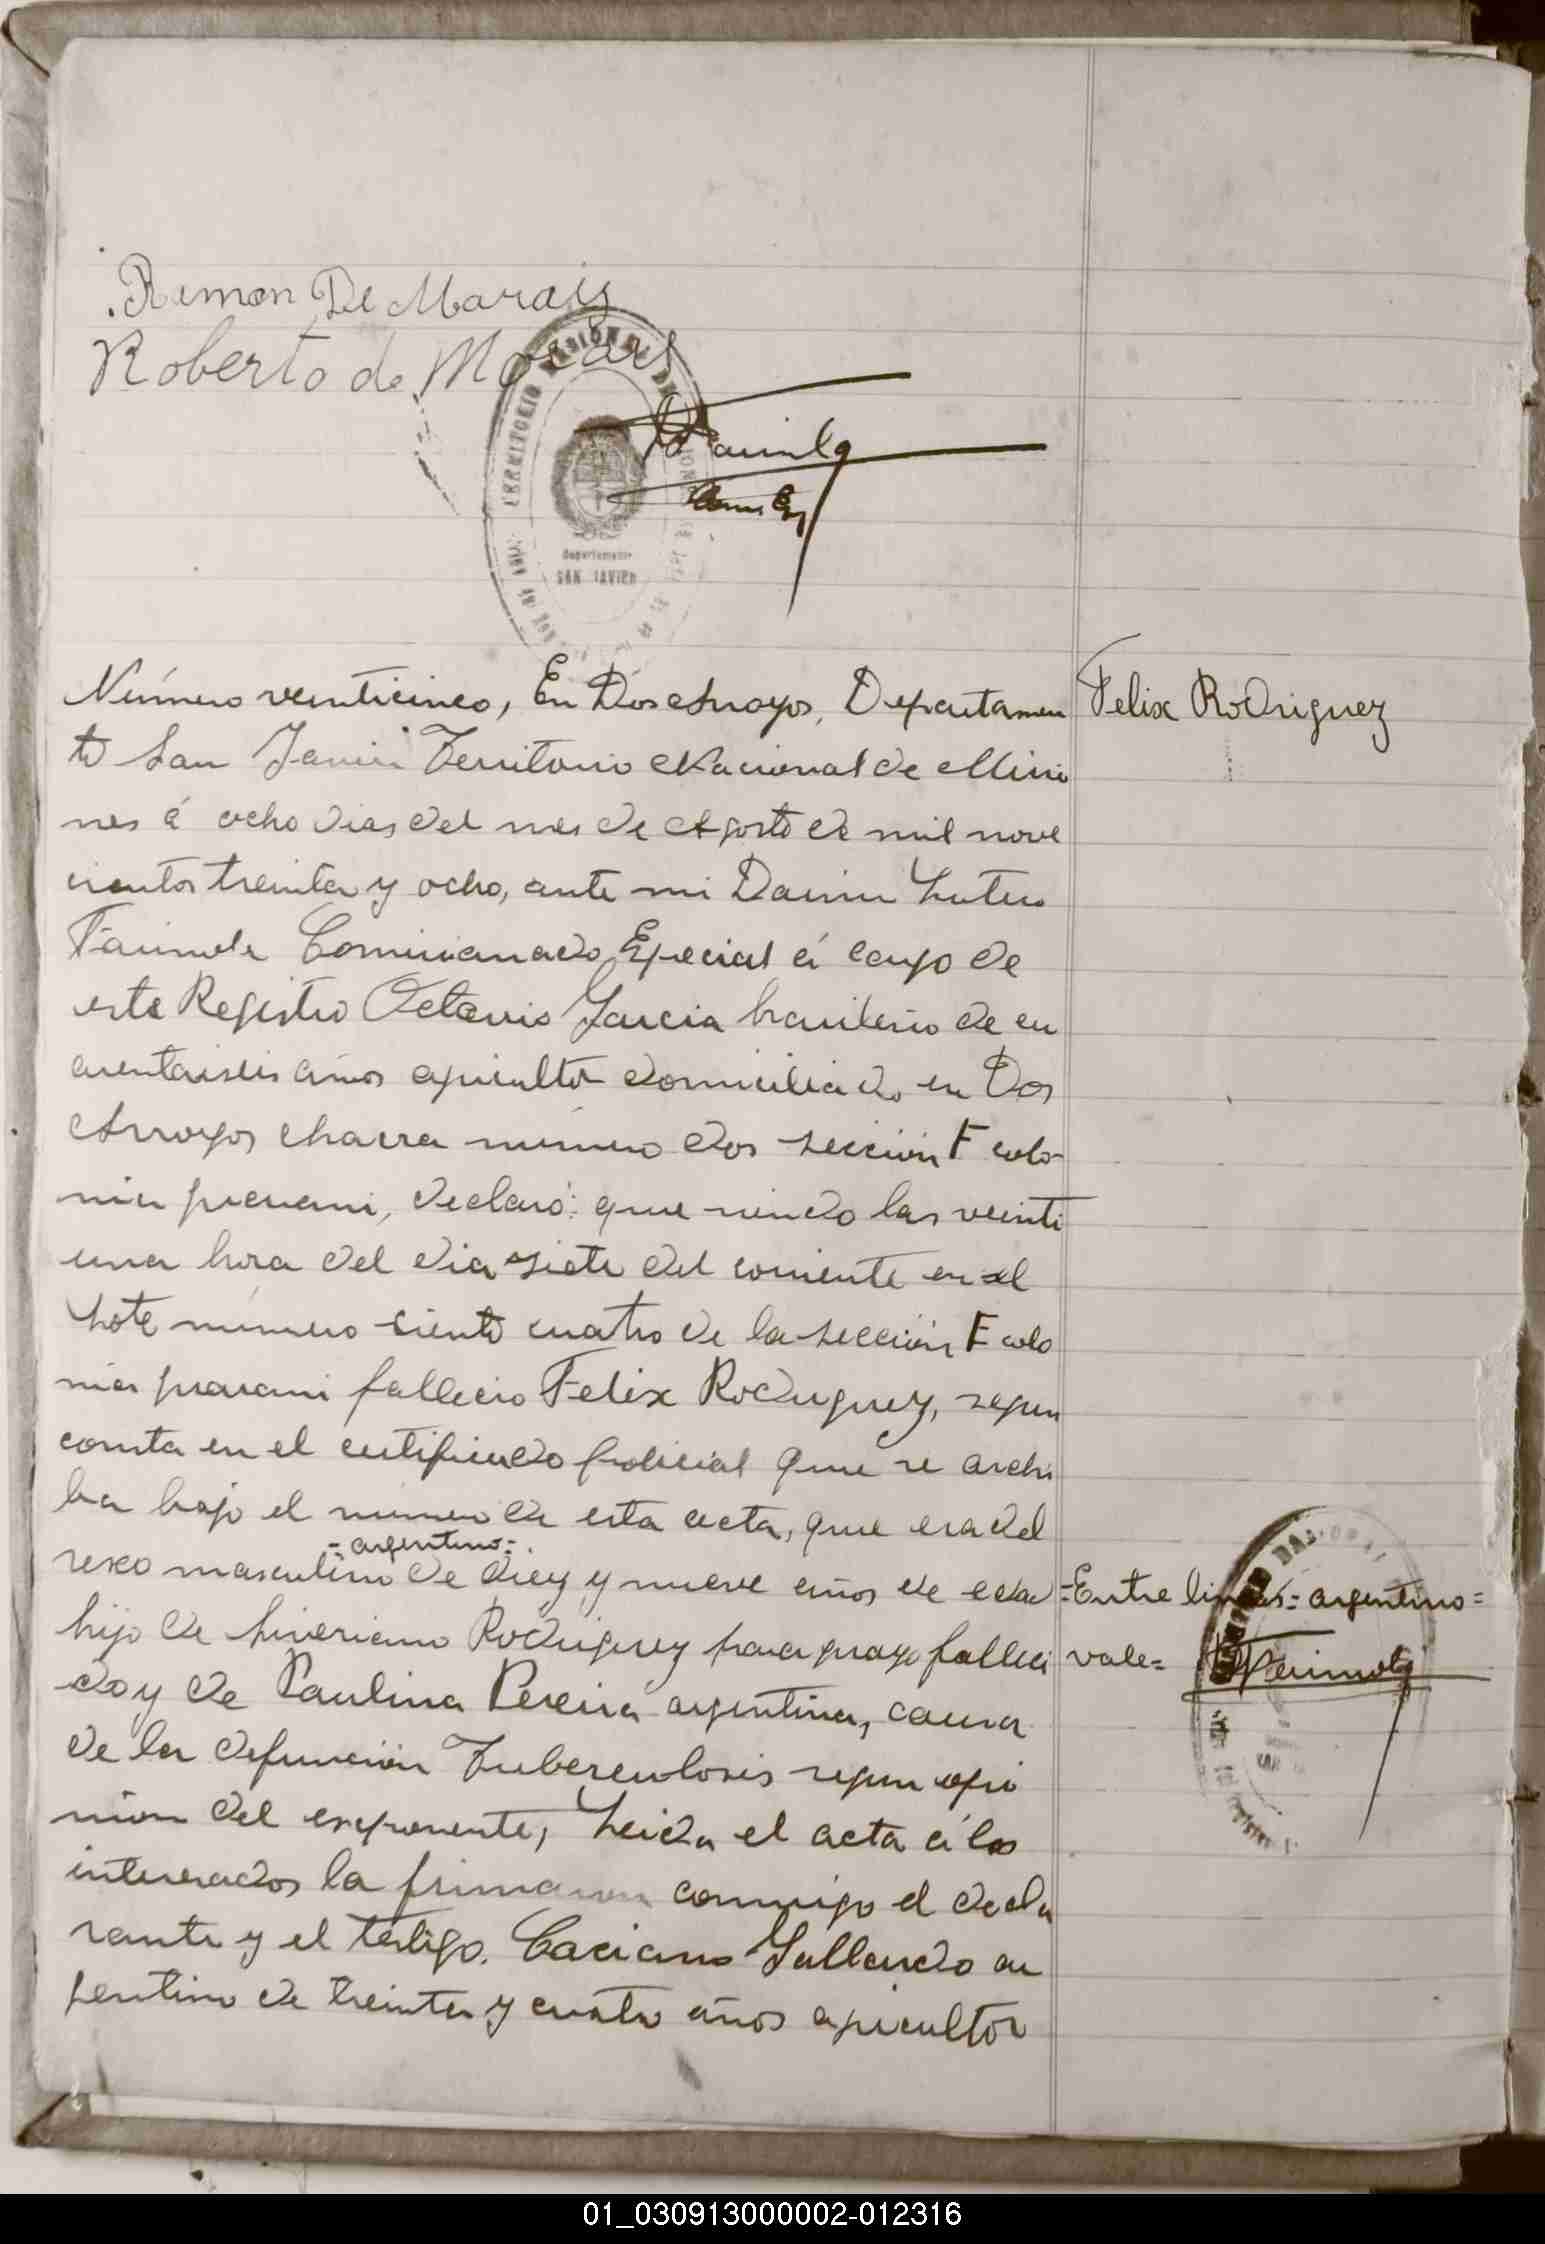 Ramon De Marais
Roberto de Morais
TERRITORIO NACIONAL DE
departamento
SAN JAVIER
Número veinticinco, En Dos Arroyos, Departamen
to San Javier Territorio Nacional de Misio
nes á ocho dias del mes de Agosto de mil nove
cientos treinta y ocho, ante mi Lutero
Comisionado Especial á cargo de
este Registro Octavio Garcia brasilero de cu
arentaiseis años agricultor domiciliado en Dos
Arroyos chacra número dos sección F colo-
nia guarani, declaró: que siendo las veinti
una hora del dia siete del corriente en el
Lote número ciento cuatro de la sección F colo
nia guarani fallecio Felix Rodriguez, segun
consta en el certificado policial que se archi
ba bajo el número de esta acta, que era del
=argentino=
sexo masculino de diez y nueve años de edad
hijo de Rodriguez paraguayo falleci
do y de Paulina Pereira argentina, causa
de la defunción Tuberculosis segun opi
nion del exponente, Leida el acta á los
interesados la firmaron conmigo el decla
rante y el testigo. Caciano Gallardo ar
gentino de treinta y cuatro años agricultor
Felix Rodriguez
=Entre lineas= argentino=
vale=
01_030913000002-012316